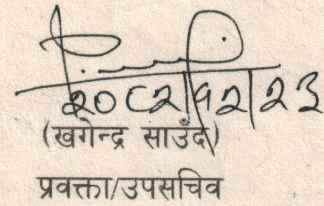 २०८२।१२।२३
(खगेन्द्र साउँद)
प्रवक्ता/उपसचिव